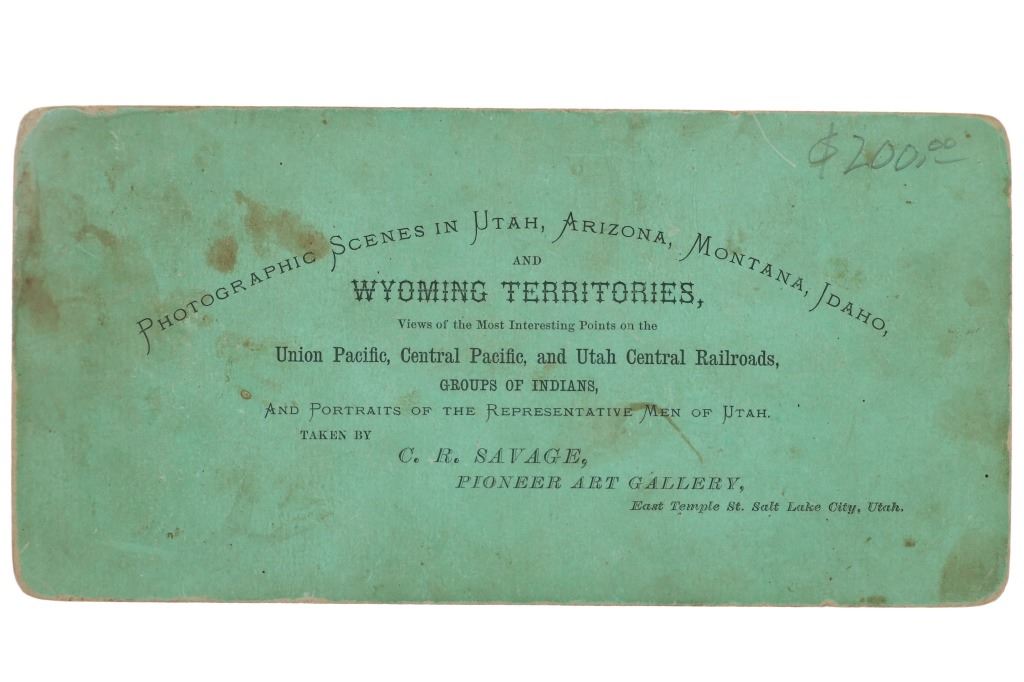 $200.00
PHOTOGRAPHIC SCENES IN UTAH, ARIZONA, MONTANA, IDAHO,
AND
WYOMING TERRITORIES,
Views of the Most Interesting Points on the
Union Pacific, Central Pacific, and Utah Central Railroads,
GROUPS OF INDIANS,
AND PORTRAITS OF THE REPRESENTATIVE MEN OF UTAH.
TAKEN BY
C. R. SAVAGE,
PIONEER ART GALLERY,
East Temple St. Salt Lake City, Utah.